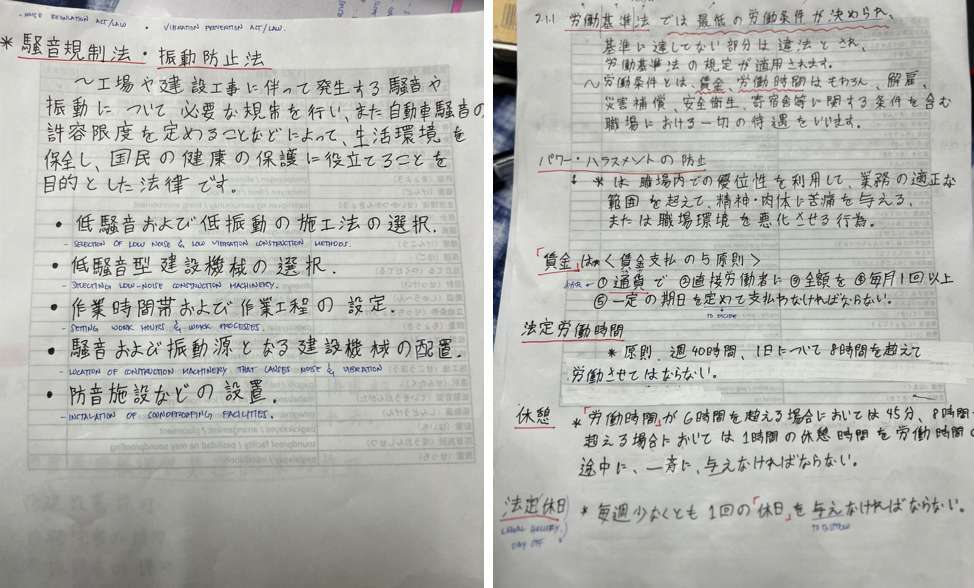 NOISE REGULATION ACT/LAW • VIBRATION PREVENTION ACT/LAW
* 騒音規制法・振動防止法
〜工場や建設工事に伴って発生する騒音や
振動について必要な規制を行い、また自動車騒音の
許容限度を定めることなどによって、生活環境を
保全し、国民の健康の保護に役立てることを
目的とした法律です。
• 低騒音および低振動の施工法の選択.
- SELECTION OF LOW NOISE & LOW VIBRATION CONSTRUCTION METHODS.
• 低騒音型建設機械の選択.
- SELECTING LOW-NOISE CONSTRUCTION MACHINERY.
• 作業時間帯および作業工程の設定.
- SETTING WORK HOURS & WORK PROCESSES.
• 騒音および振動源となる建設機械の配置.
- LOCATION OF CONSTRUCTION MACHINERY THAT CAUSES NOISE & VIBRATION
• 防音施設などの設置.
- INSTALATION OF SOUNDPROOFING FACILITIES.
2.1.1 労働基準法では最低の労働条件が決められ、
基準に達してない部分は違法とされ、
労働基準法の規定が適用されます。
〜労働条件とは、賃金、労働時間はもちろん、解雇、
災害補償、安全衛生、寄宿舎等に関する条件を含む
職場における一切の待遇をいいます。
パワー・ハラスメントの防止
* は 職場内での優位性を利用して、業務の適正な
範囲を超えて、精神・肉体に苦痛を与える、
または職場環境を悪化させる行為。
「賃金」は <賃金支払の5原則>
①通貨で ②直接労働者に ③全額を ④毎月1回以上
⑤一定の期日を定めて支払わなければならない。
TO DECIDE
法定労働時間
* 原則、週40時間、1日について8時間を超えて
労働させてはならない。
休憩 *「労働時間」が6時間を超える場合においては45分、8時間を
超える場合においては1時間の休憩時間を労働時間の
途中に、一斉に、与えなければならない。
法定休日 * 毎週少なくとも1回の「休日」を与えなければならない。
LEGAL HOLIDAY/
DAY OFF